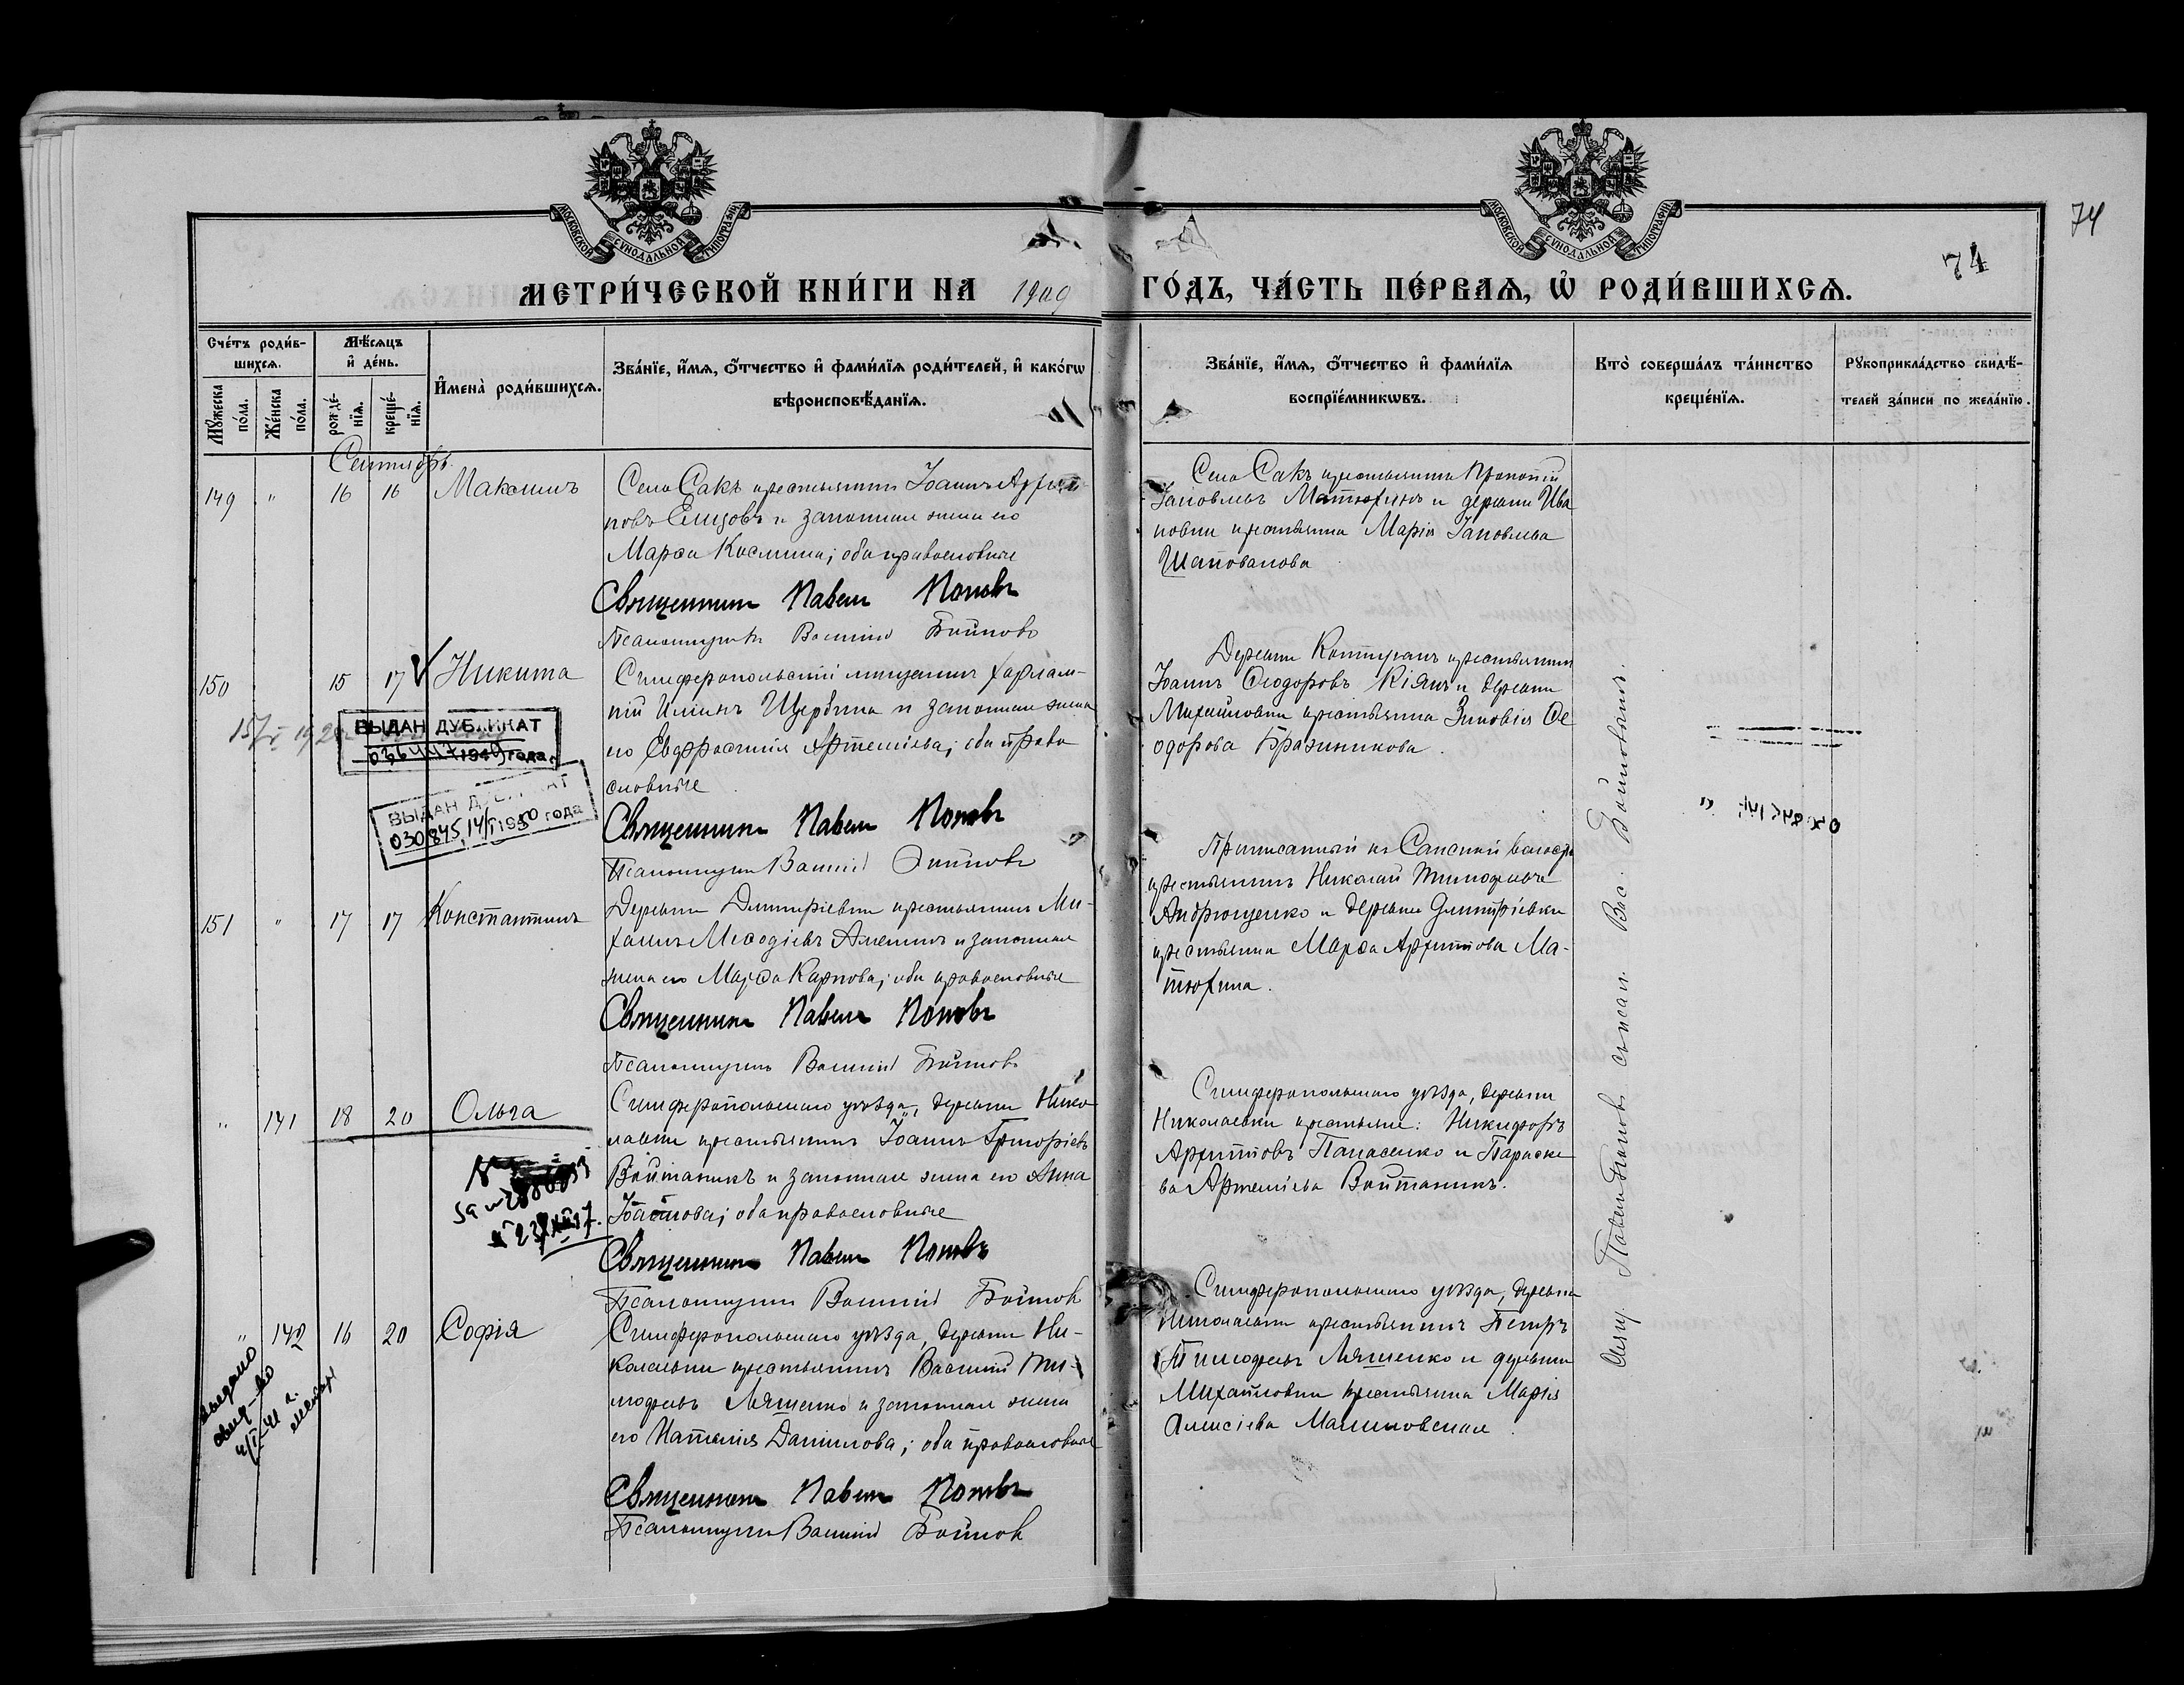 74
74
МОСКОВСКОЙ СѴНОДАЛЬНОЙ ТИПОГРАФІИ
МОСКОВСКОЙ СѴНОДАЛЬНОЙ ТИПОГРАФІИ
МЕТРИ́ЧЕСКОЙ КНИ́ГИ НА 1909 ГО́ДЪ, ЧА́СТЬ ПЕ́РВАѦ, Ѡ҆ РОДИ́ВШИХСѦ.
Сче́тъ роди́в-
шихсѧ.
Мꙋ́жеска по́ла.
Же́нска по́ла.
Мѣ́сѧцъ
и҆ де́нь.
рожде́-
нїѧ.
креще́-
нїѧ.
И҆мена̀ роди́вшихсѧ.
Зва́нїе, и҆́мѧ, ѻ҆́тчество и҆ фами́лїѧ роди́телей, и҆ како́гѡ
вѣроисповѣ́данїѧ.
Зва́нїе, и҆́мѧ, ѻ҆́тчество и҆ фами́лїѧ
воспрїе́мникѡвъ.
Кто̀ соверша́лъ та́инство
креще́нїѧ.
Рꙋкоприкла́дство свидѣ́-
телей за́писи по жела́нїю.
Сентябрь
149 " 16 16 Максимъ
Села Сакъ крестьянинъ Іоаннъ Архип-
повъ Елизовъ и законная жена его
Марѳа Космина; оба православные
Священникъ Павелъ Поповъ
Псаломщикъ Василій Войновъ
Села Сакъ крестьянинъ Прокопій
Іаковлевъ Матюхинъ и деревни Ива
новки крестьянка Марія Іаковлева
Шаповалова
150 15 17 Никита
Симферопольскій мещанинъ Харлам-
пій Илїинъ Щербина и законная жена
его Евфросинія Артеміева; оба право
славные
Священникъ Павелъ Поповъ
Псаломщикъ Василій Войновъ
Деревни Контуганъ крестьянинъ
Іоаннъ Ѳеодоровъ Кіянъ и деревни
Михайловки крестьянка Зиновія Ѳе
одорова Бражникова.
ВЫДАН ДУБЛИКАТ
ВЫДАН ДУБЛИКАТ
030845, 14/I 1950 года
151 " 17 17 Константинъ
Деревни Димитріевки крестьянинъ Ми-
хаилъ Меѳодіевъ Алешинъ и законная
жена его Марѳа Карпова; оба православные
Священникъ Павелъ Поповъ
Псаломщикъ Василій Войновъ
Приписанный къ Сакской волости
крестьянинъ Николай Тимофеевъ
Андрющенко и деревни Димитріевки
крестьянка Марѳа Архиппова Ма-
тюхина.
" 141 18 20 Ольга
Симферопольскаго уѣзда, деревни Нико
лаевки крестьянинъ Іоаннъ Григоріевъ
Войтаникъ и законная жена его Анна
оба православные
Священникъ Павелъ Поповъ
Псаломщикъ Василій Войновъ
Симферопольскаго уѣзда, деревни
Николаевки крестьяне: Никифоръ
Архипповъ Панасенко и Параске
ва Артеміева Войтаникъ.
" 142 16 20 Софія
Симферопольскаго уѣзда, деревни Ни-
колаевки крестьянинъ Василій Ти-
мофеевъ Ляшенко и законная жена
его Наталія Данилова; оба православные
Священникъ Павелъ Поповъ
Псаломщикъ Василій Войновъ
Симферопольскаго уѣзда, деревни
Николаевки крестьянинъ Петръ
Тимофеевъ Ляшенко и деревни
Михайловки крестьянка Марія
Алексіева Малиновская.
Свящ. Павелъ Поповъ съ псал. Вас. Войновымъ.
выдано
свид-во
4/I-41 г.